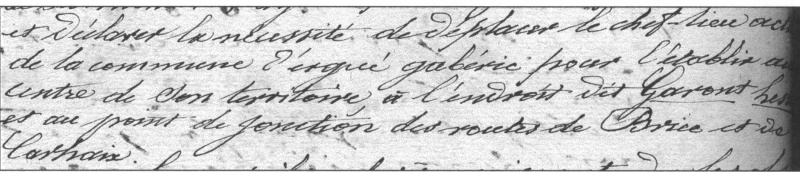 et déclarer la nécessité de déplacer le chef-lieu
de la commune d'ergué gabéric pour l'établir au
centre de son territoire à l'endroit dit Garont
et au point de jonction des routes de Briec et de
Carhaix.